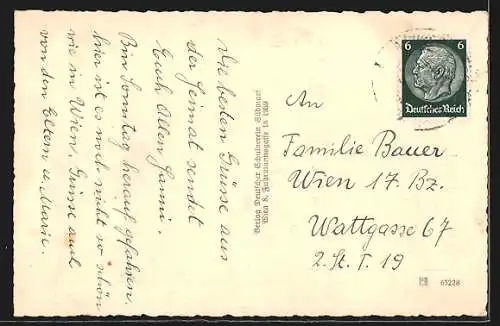 Die besten Grüsse aus
der Heimat sendet
Euch Allen Hanni.
Bin Sonntag herauf gefahren,
hier ist es noch nicht so schön
wie in Wien. Grüsse auch
von den Eltern u. Marie.
Verlag Deutscher Schulverein Südmark
Wien 8, Fuhrmannsgasse 18
6 6
Deutsches Reich
An
Familie Bauer
Wien 17. Bz.
Wattgasse 67
2. St. T. 19
65228